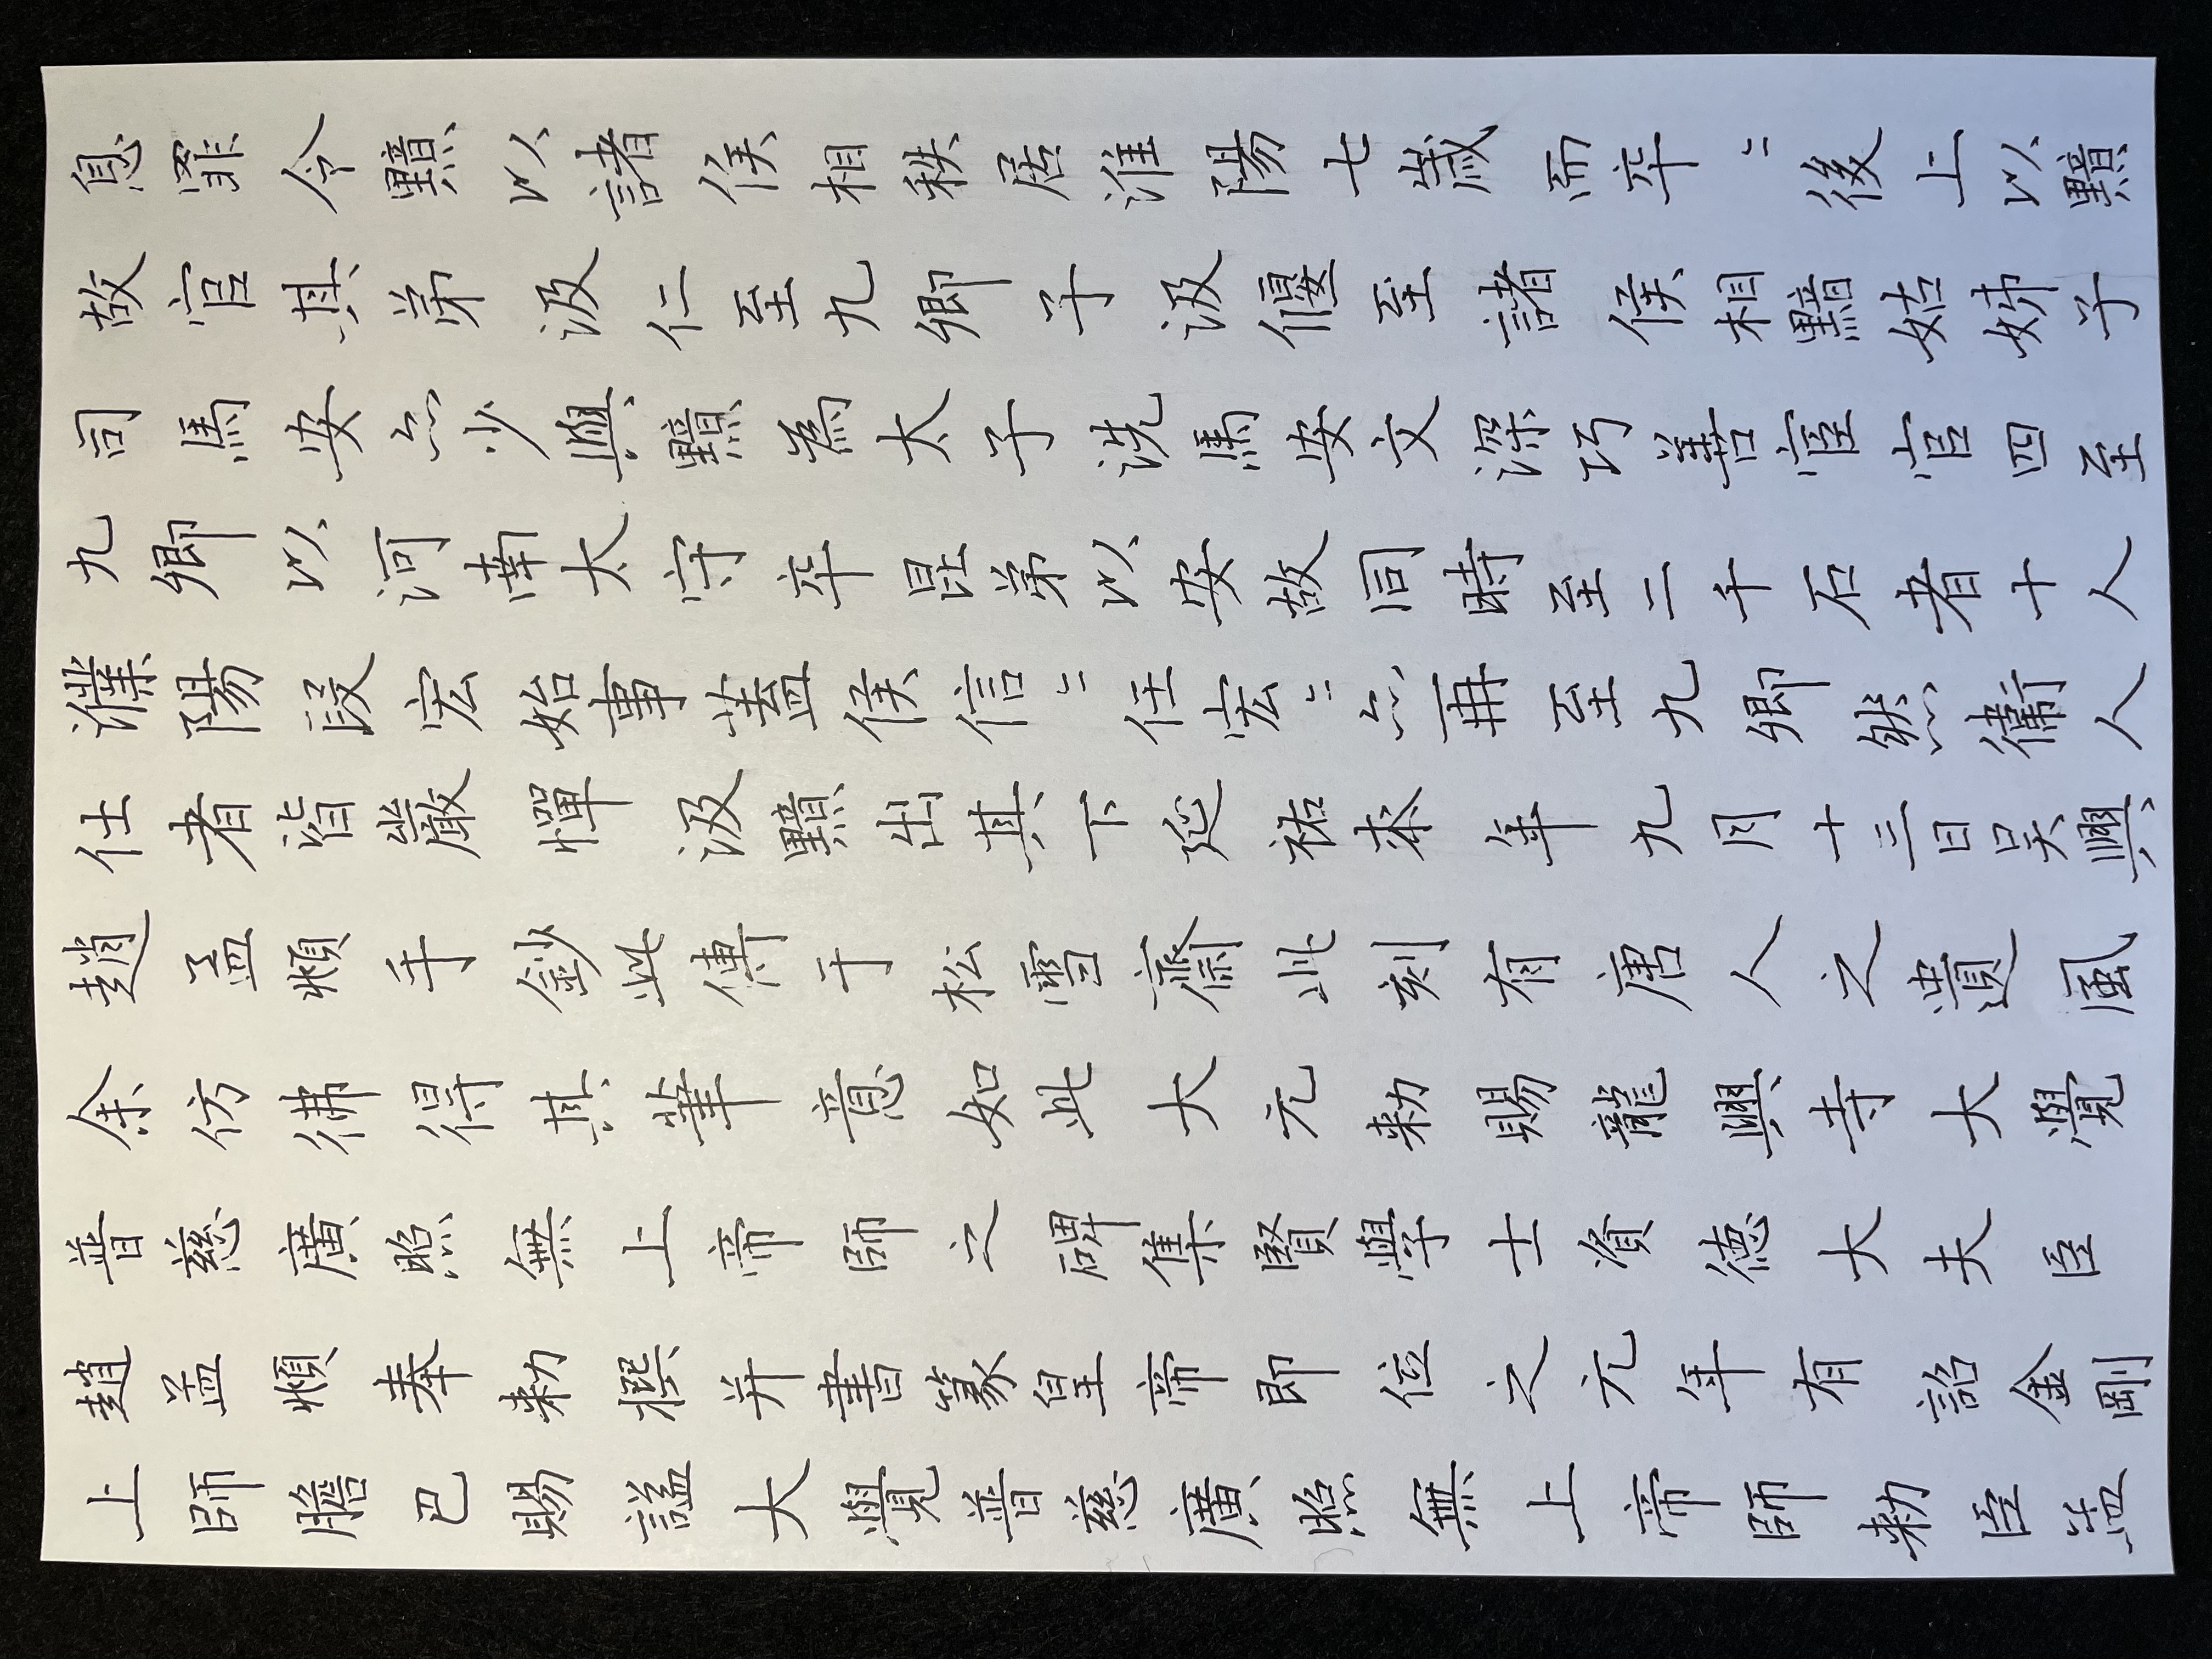 息罪令黯以諸侯相秩居淮陽七歲而卒〻後上以黯
故官其弟汲仁至九卿子汲偃至諸侯相黯姑姊子
司馬安亦少與黯為太子洗馬安文深巧善宦官四至
九卿以河南太守卒昆弟以安故同時至二千石者十人
濮陽段宏始事蓋侯信〻任宏〻亦再至九卿然衛人
仕者皆嚴憚汲黯出其下延祐柒年九月十三日吳興
趙孟頫手鈔此傳于松雪齋此刻有唐人之遺風
余仿彿得其筆意如此大元勑賜龍興寺大覺
普慈廣照無上帝師之碑集賢學士資德大夫臣
趙孟頫奉勑撰并書篆皇帝即位之元年有詔金剛
上師膽巴賜謚大覺普慈廣照無上帝師勑臣孟